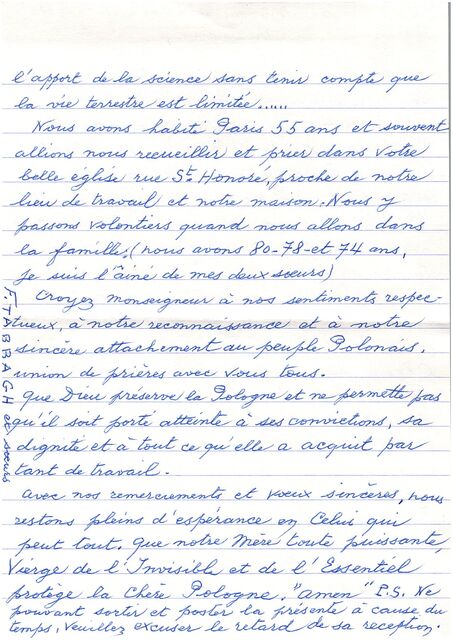 l'apport de la science sans tenir compte que
la vie terrestre est limitée......
Nous avons habité Paris 55 ans et souvent
allions nous recueillir et prier dans votre
belle eglise rue St. Honoré, proche de notre
lieu de travail et notre maison. Nous y
passons volontiers quand nous allons dans
la famille. (nous avons 80-78-et 74 ans,
je suis l'âiné de mes deux sœurs)
Croyez monseigneur à nos sentiments respec-
tueux, à notre reconnaissance et à notre
sincère attachement au peuple Polonais,
union de prières avec vous tous.
que Dieu préserve la Pologne et ne permette pas
qu'il soit porte atteinte à ses convictions, sa
dignité et à tout ce qu'elle a acquit par
tant de travail.
Avec nos remerciements et vœux sincères, nous
restons pleins d'espérance en Celui qui
peut tout. Que notre Mère toute puissante,
Vierge de l'Invisible et de l'Essentiel
protège la Chère Pologne. "amen" P.S. Ne
pouvant sortir et poster la présente à cause du
temps, veuillez excuser le retard de sa réception.
F. TABBAGH et sœurs